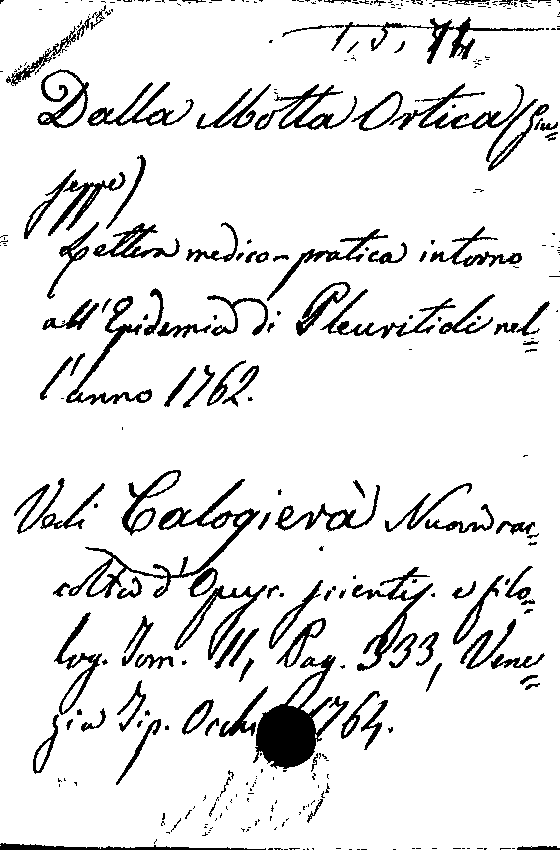 1, 5, 74
Dalla Motta Ortica (Giu=
seppe)
Lettera medico-pratica intorno
all'Epidemia di Pleuritidi nel=
l'anno 1762.
Vedi Calogierà Nuova rac=
colta d'Opusc. scientif. e filo=
log. Tom. 11, Pag. 333, Vene=
zia Tip. Occhi 1764.